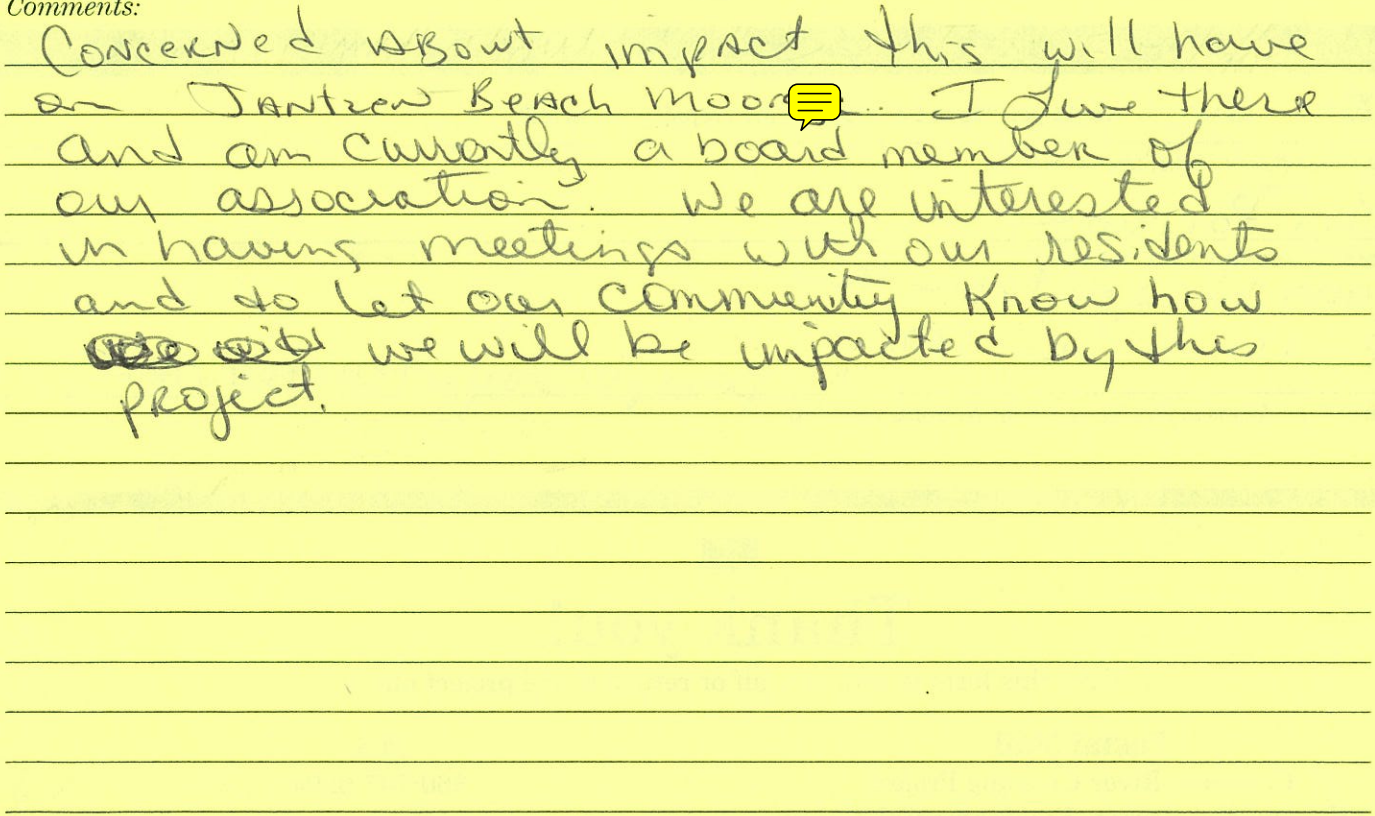 Comments:
Concerned About impact this will have
on Jantzen Beach I live there
and am currently a board member of
our association. We are interested
in having meetings with our residents
and to let our community know how
we will be impacted by this
project.